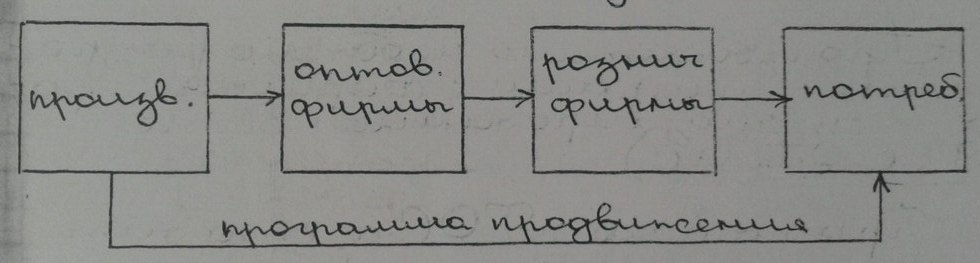 произв.
оптов.
фирмы
рознич
фирмы
потреб.
программа продвижения